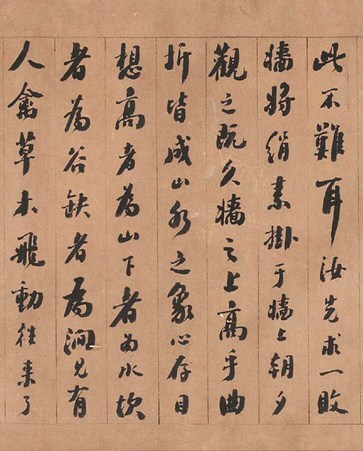 此不難耳汝先求一敗
墻將絹素掛于墻上朝夕
觀之既久墻之上高平曲
折皆成山水之象心存目
想高者為山下者為水坎
者為谷缺者為澗見有
人禽草木飛動往来了